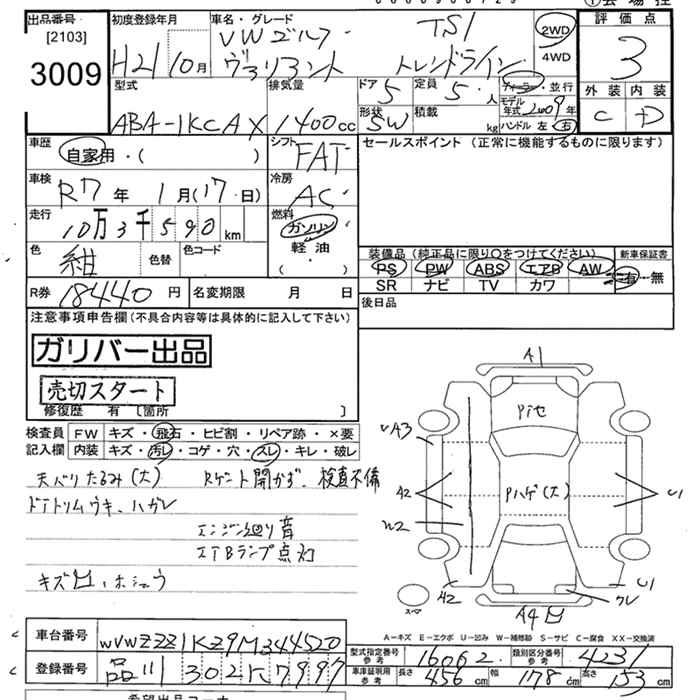 出品番号 初度登録年月 車名・グレード 評価点
[2103] H21 10月 VWゴルフ TSI 2WD 3
3009 ヴァリアント トレンドライン 4WD
型式 排気量 ドア 定員 ディーラー・並行 外装 内装
ABA-1KCAX 1400cc 5 5人 モデル年式 2009年 C D
形状 SW 積載 kg ハンドル 左 右
車歴 シフト セールスポイント (正常に機能するものに限ります)
自家用・( ) FAT
車検 冷房
R7年 1月(17日) AC
走行 燃料
10万3千590km ガソリン
軽油
( )
色 紺 色替 色コード 装備品 (純正品に限り○をつけてください) 新車保証書
PS PW ABS エアB AW 有・無
R券 18440円 名変期限 月 日 SR ナビ TV カワ
注意事項申告欄(不具合内容等は具体的に記入して下さい) 後日品
ガリバー出品
売切スタート
修復歴 有 [箇所 ]
検査員 FW キズ・飛石・ヒビ割・リペア跡・×要
記入欄 内装 キズ・汚レ・コゲ・穴・スレ・キレ・破レ
天バリたるみ(大) Rゲート開かず、検査不備
ドアトリムウキ、ハガレ
エンジン廻り音
エアBランプ点灯
A1
Pアセ
UA3
A2
Pハゲ(大)
U1
W2
A2
U1
スペア
クレ
A4
A-キズ E-エクボ U-凹み W-補修跡 S-サビ C-腐食 XX-交換済
車台番号 WVWZZZ1KZ9M344520
型式指定番号 参考 16062 類別区分番号 参考 4231
登録番号 品川 302 7997
車庫証明用 参考 長さ 456cm 幅 178cm 高さ 153cm